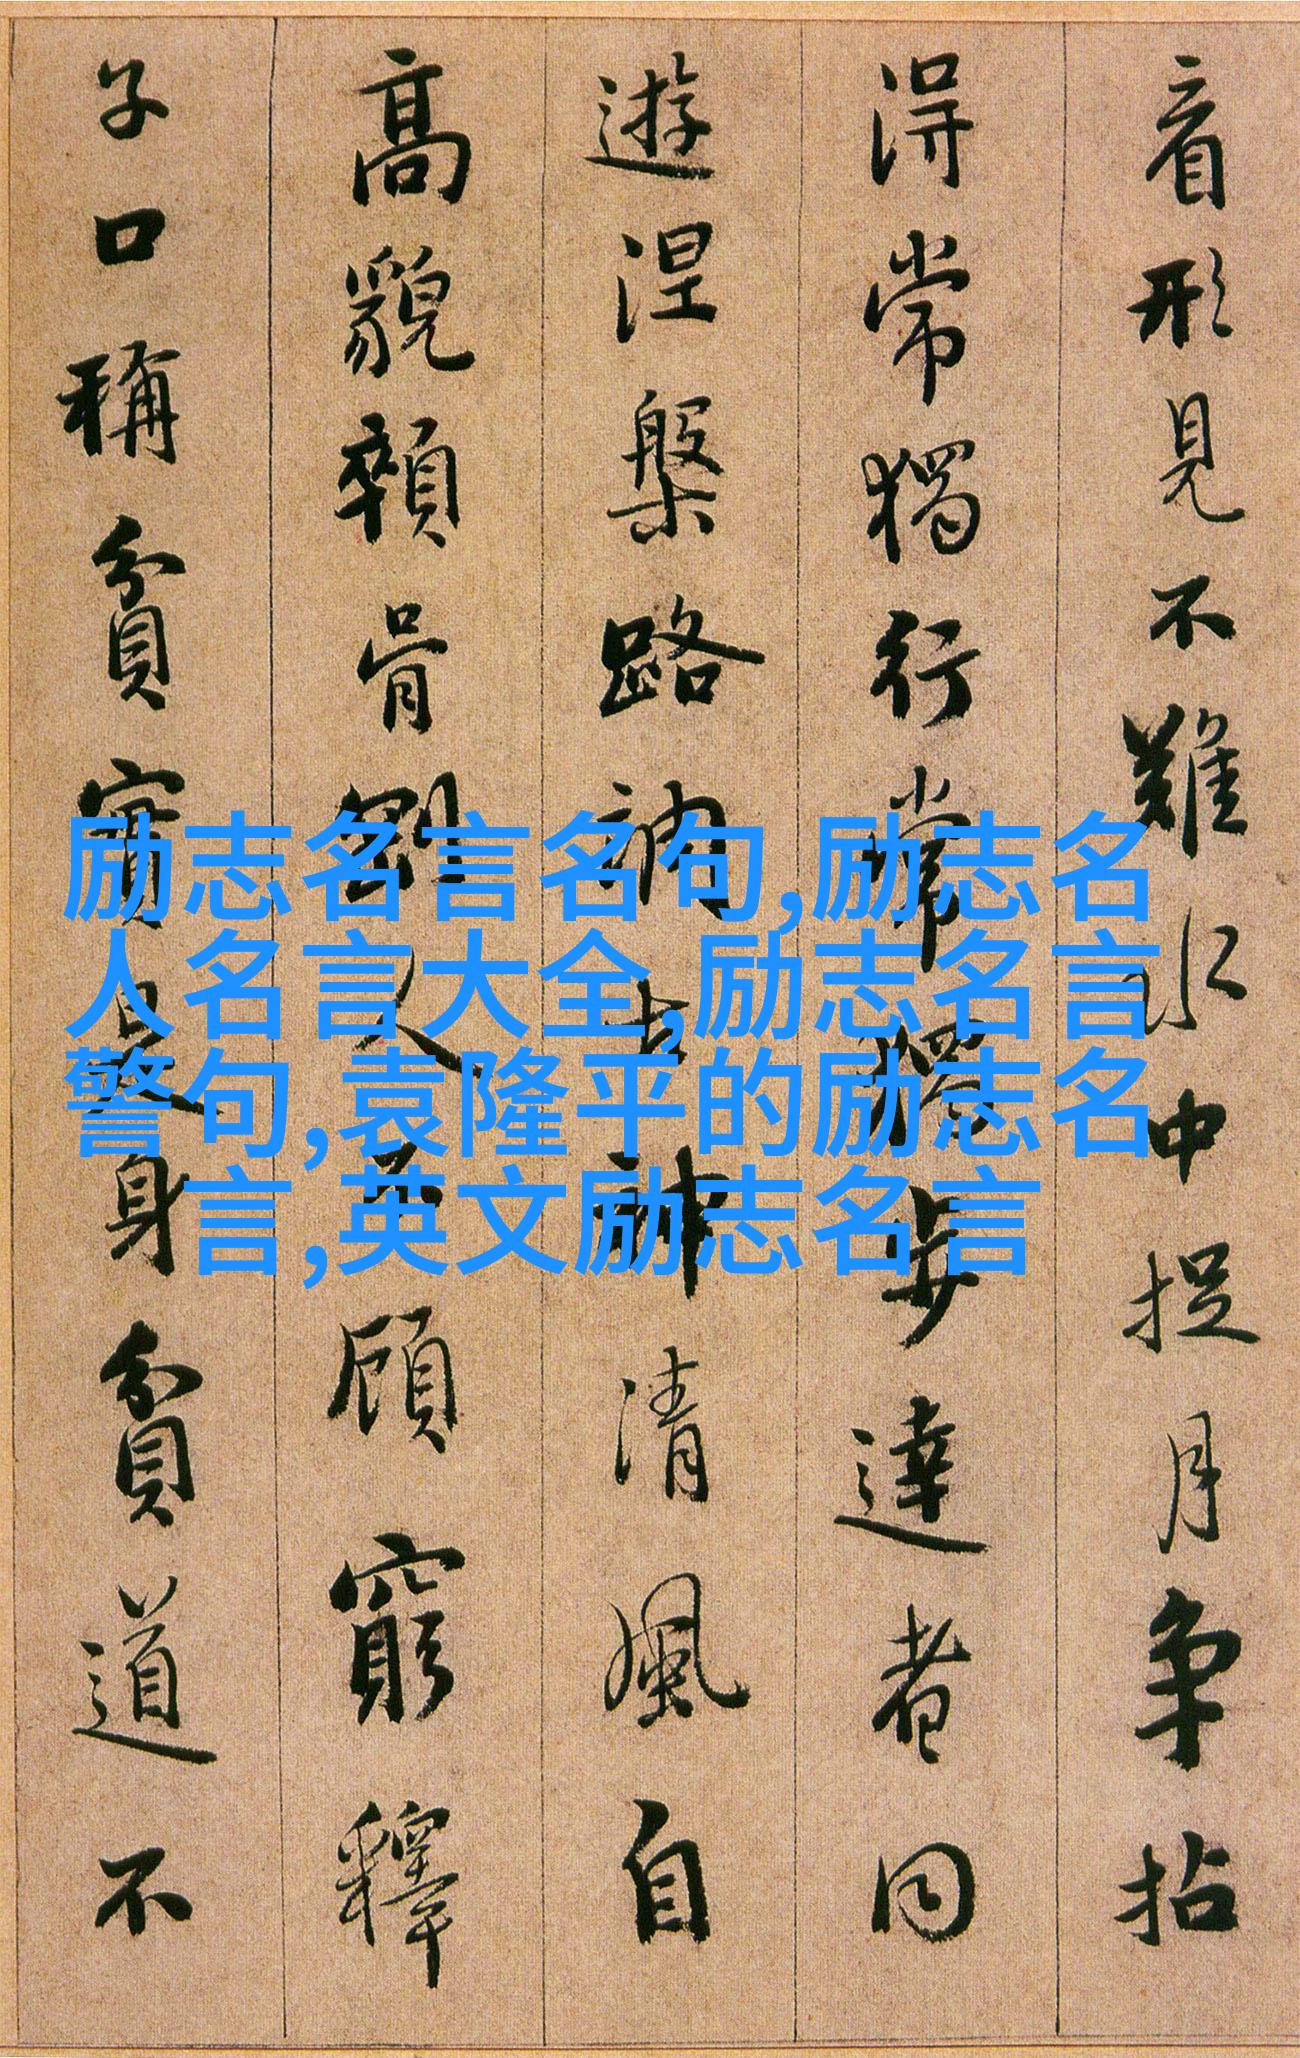 看形見不難水中捉月争拈
得常獨行常獨步達者同
遊涅槃路調古神清風自
高貌顇骨剛人不顧窮釋
子口稱貧實是身貧道不
励志名言名句,励志名
人名言大全,励志名言
警句,袁隆平的励志名
言,英文励志名言